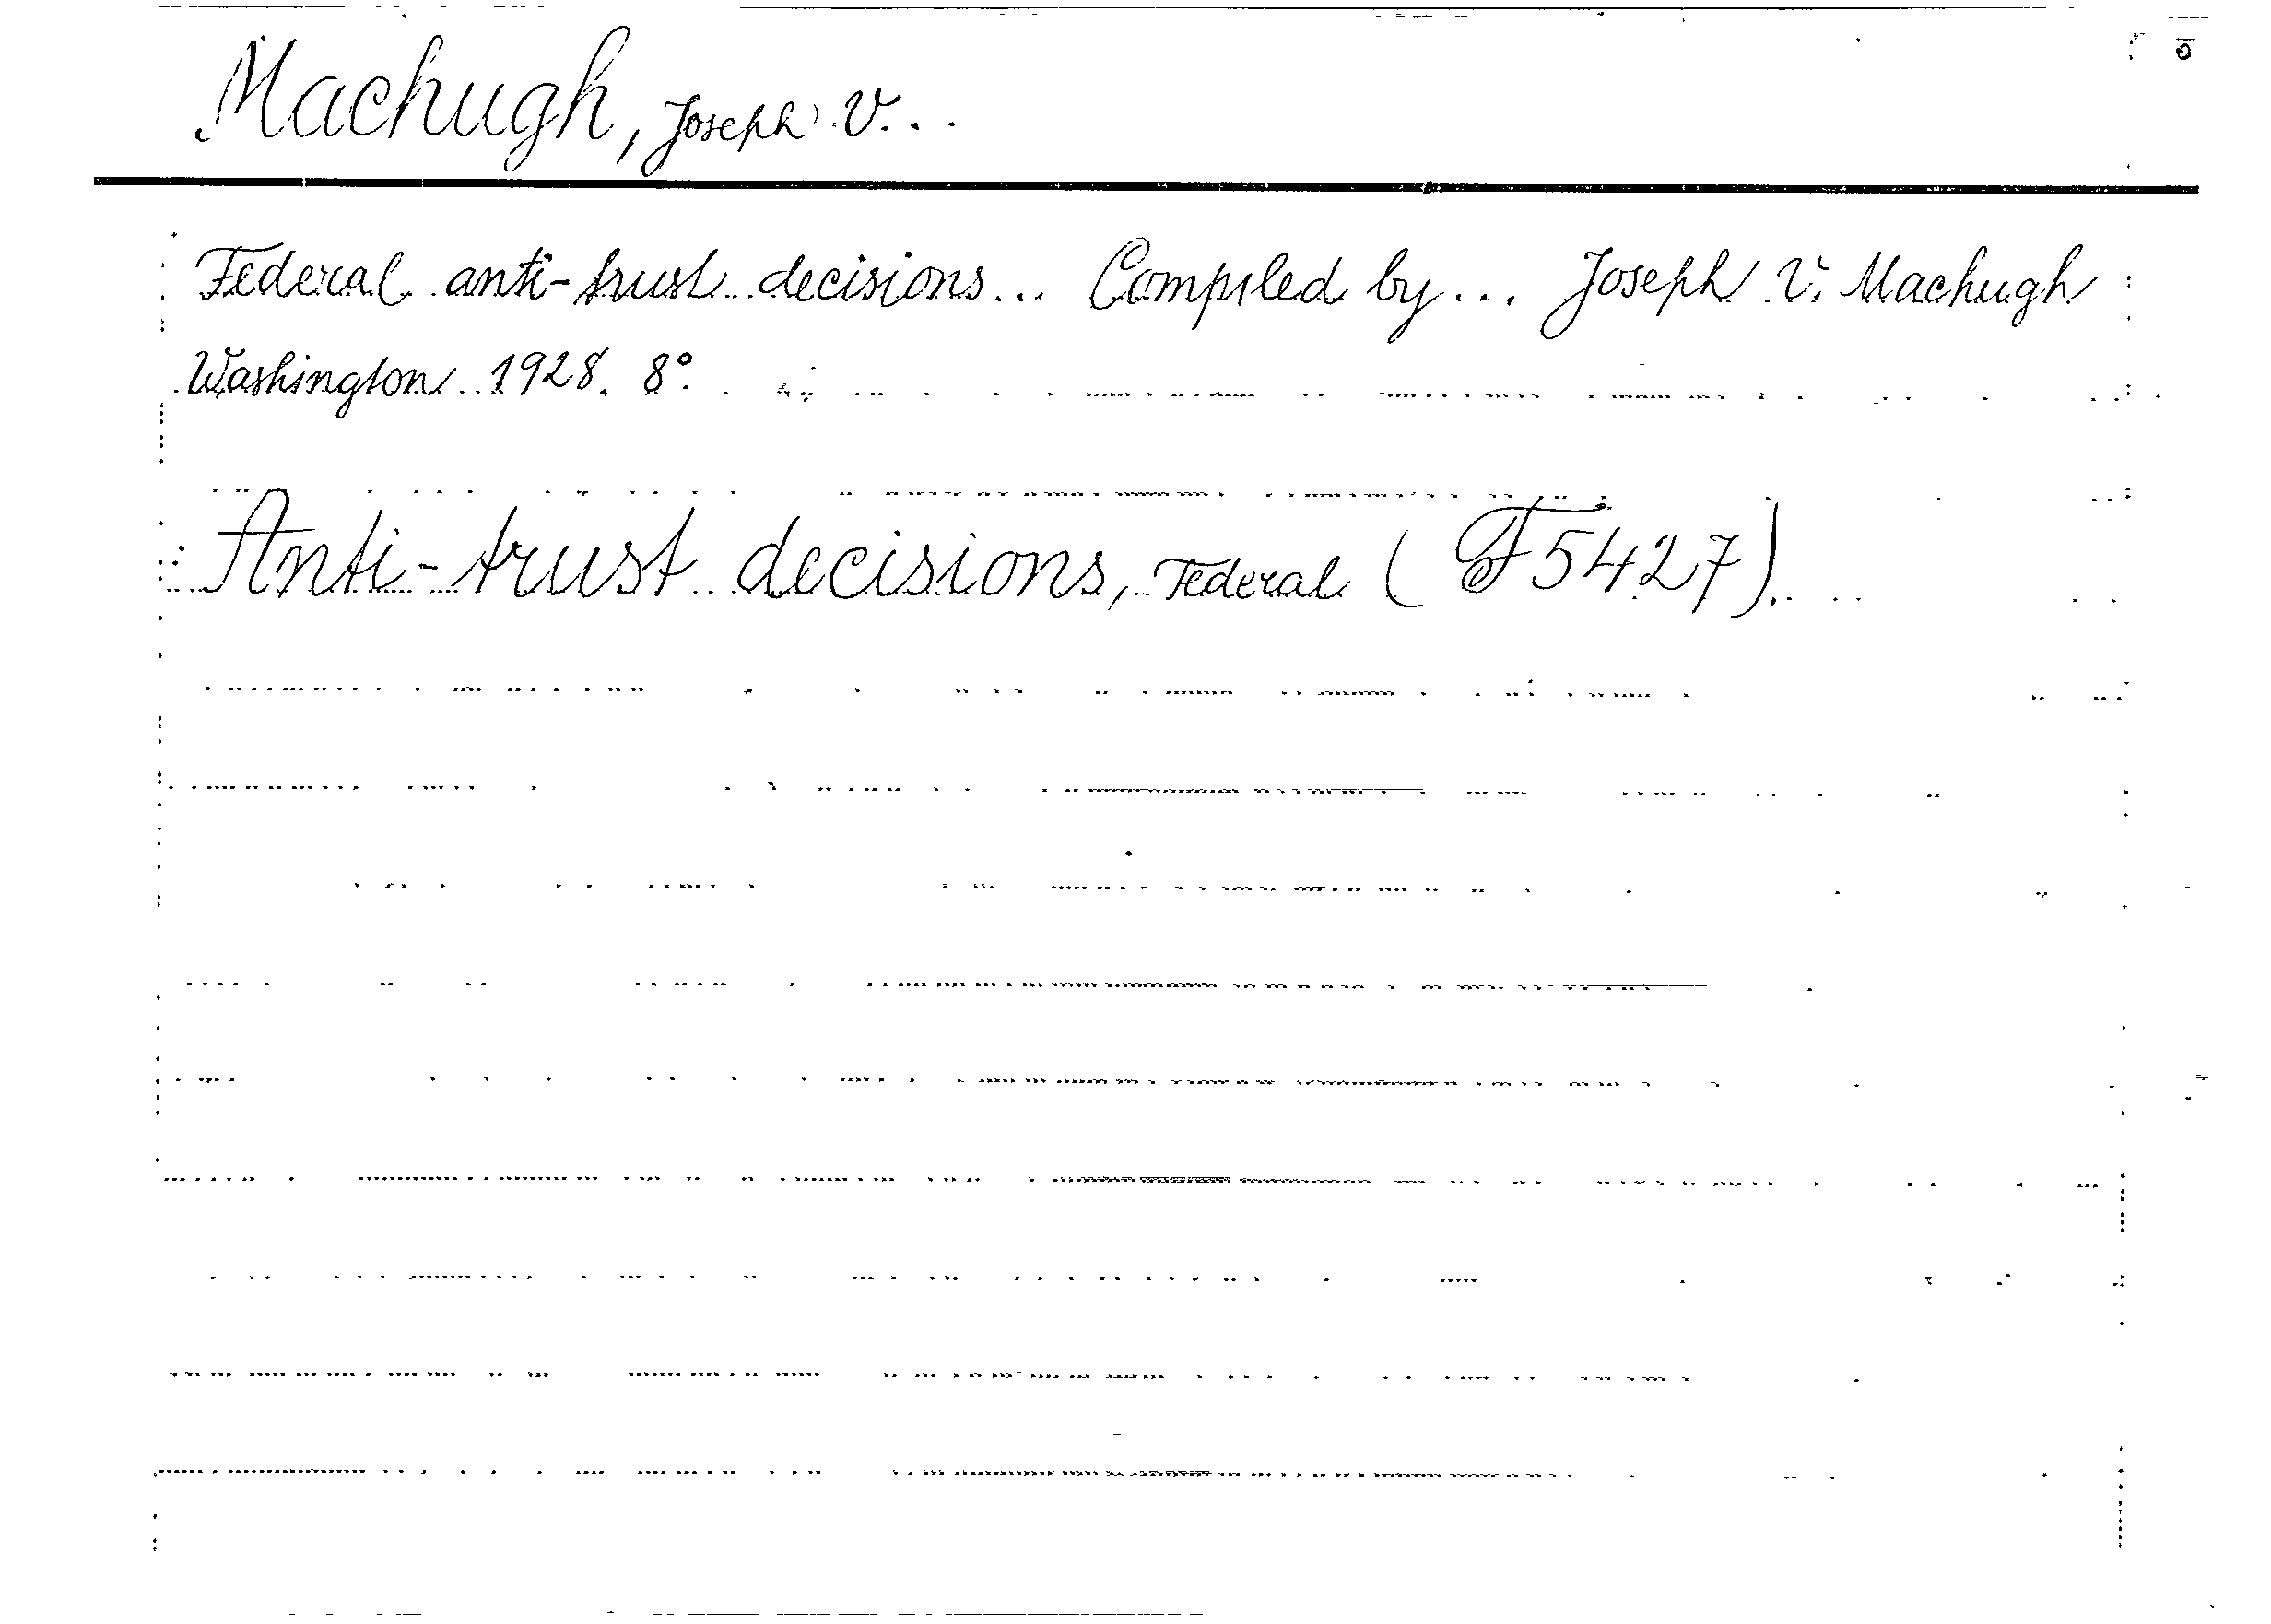 Machugh, Joseph V...
Federal anti-trust decisions... Compiled by... Joseph V. Machugh
Washington 1928. 8°.
Anti-trust decisions, Federal (F5427).